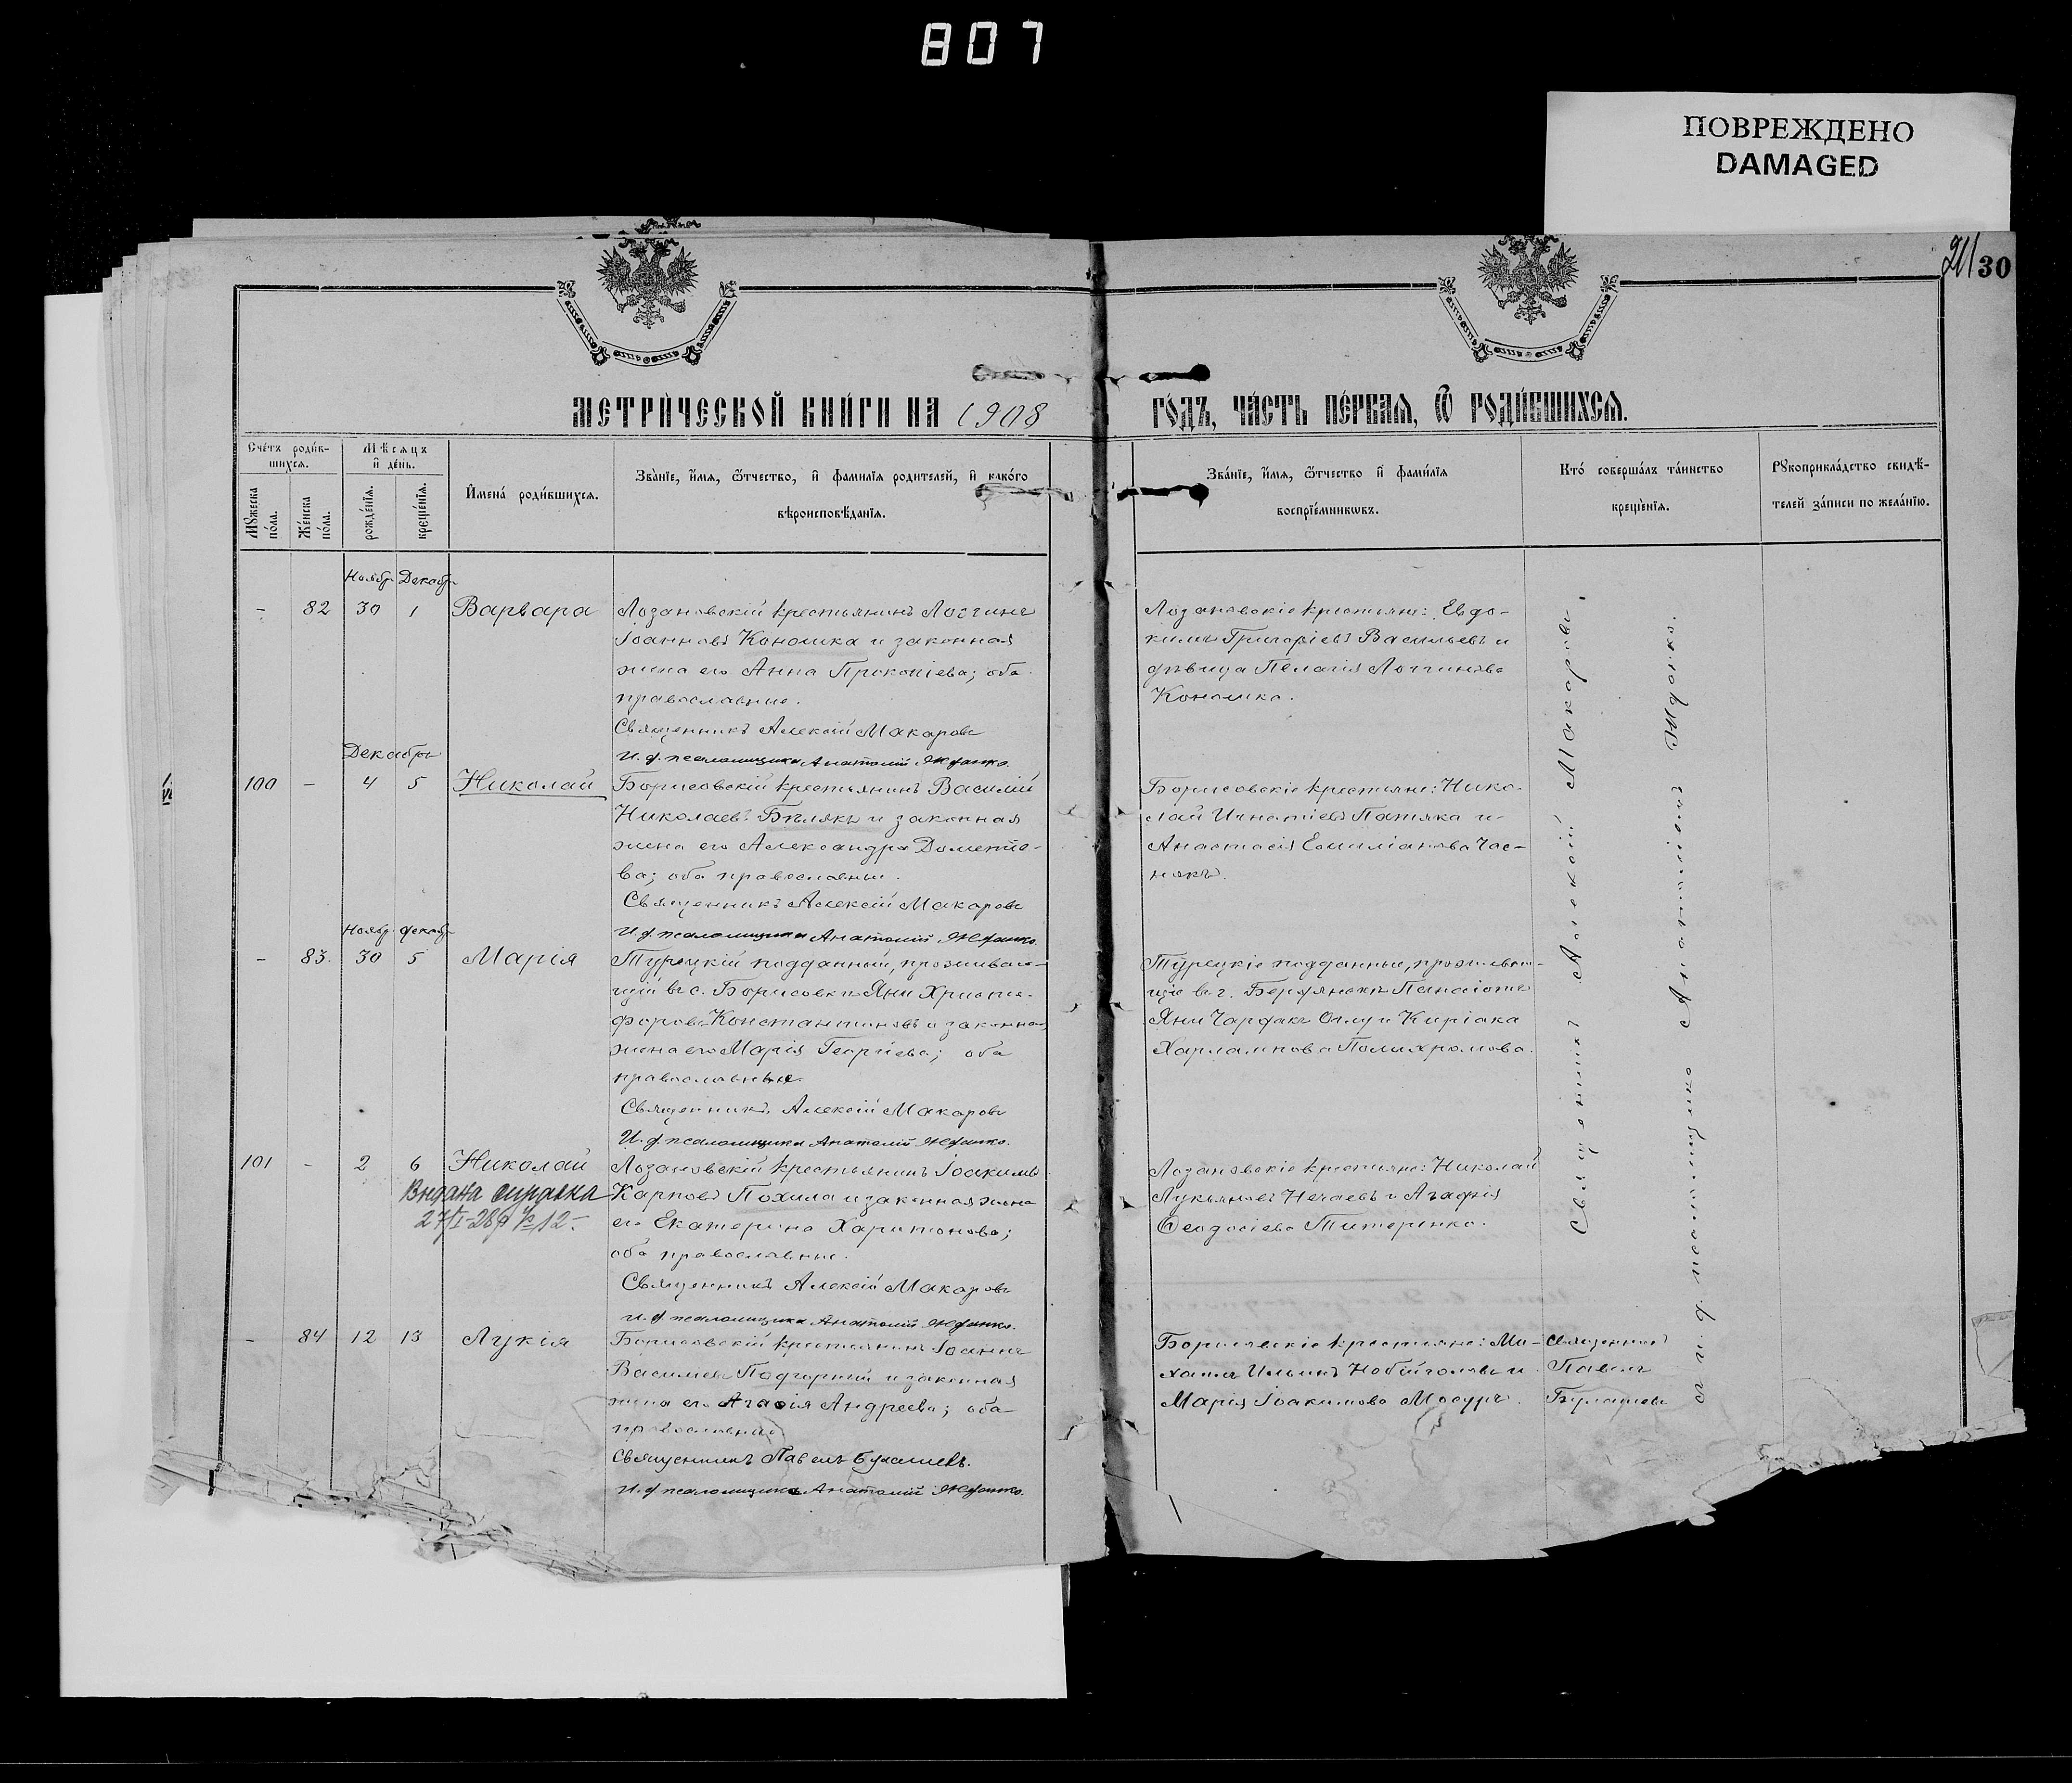 807
ПОВРЕЖДЕНО
DAMAGED
30
МЕТРИ́ЧЕСКОЙ КНИ́ГИ НА 1908
ГО́ДЪ, ЧА́СТЬ ПЕ́РВАЯ, Ѿ РОДИ́ВШИХСЯ.
Сче́тъ роди́в-
шихся.
Мѣсяцъ
и҆ де́нь.
Мꙋжеска
по́ла.
Же́нска
по́ла.
рожде́нїя.
креще́нїя.
И҆мена́ роди́вшихся.
Зва́нїе, и҆́мя, ѻ҆́тчество, и҆ фами́лїя родителей, и҆ како́го
вѣроисповѣ́данїя.
Зва́нїе, и҆́мя, ѻ҆́тчество и҆ фами́лїя
воспрїе́мникωвъ.
Кто́ соверша́лъ та́инство
креще́нїя.
Рꙋкоприкла́дство свидѣ́-
телей за́писи по жела́нїю.
Ноябр. Декабр.
- 82 30 1 Варвара
Лозановскій крестьянинъ Логгинъ
Іоанновъ Кономка и законная
жена его Анна Прокопіева; оба
православные.
Священникъ Алексій Макаровъ
И. д. псаломщика Анатолій Жданко.
Лозановскіе крестьяне: Евдо-
кимъ Григоріевъ Васильевъ и
дѣвица Пелагія Логгинова
Кономка.
Декабрь
100 - 4 5 Николай
Борисовскій крестьянинъ Василій
Николаевъ Бѣлякъ и законная
жена его Александра Дометіе-
ва; оба православные.
Священникъ Алексій Макаровъ
И. д. псаломщика Анатолій Жданко.
Борисовскіе крестьяне: Нико-
лай Игнатіевъ Патяка и
Анастасія Емиліанова Час-
някъ.
Ноябр. Декабр.
- 83. 30 5 Марія
Турецкій подданный, проживаю-
щій въ с. Борисовкѣ Яни Христо-
форовъ Константиновъ и законная
жена его Марія Георгіева; оба
православные.
Священникъ Алексій Макаровъ
И. д. псаломщика Анатолій Жданко.
Турецкіе подданные, проживаю-
щіе въ г. Бердянскѣ Панаіотъ
Яни Чардакъ Оглу и Киріака
Харлампова Полихронова.
101 - 2 6 Николай
Видана справка
27/I-28р № 12-
Лозановскій крестьянинъ Іоакимъ
Карповъ Похила и законная жена
его Екатерина Харитонова;
оба православные.
Священникъ Алексій Макаровъ
И. д. псаломщика Анатолій Жданко.
Лозановскіе крестьяне: Николай
Лукьяновъ Нечаевъ и Агафія
Ѳеодосіева Титеренко.
- 84 12 13 Лукія
Борисовскій крестьянинъ Іоаннъ
Васильевъ Подгорный и законная
жена его Агафія Андреева; оба
православные
Священникъ Павелъ Булашевъ.
И. д. псаломщика Анатолій Жданко.
Борисовскіе крестьяне: Ми-
хаилъ Ильинъ Небійголова и
Марія Іоакимова Мосуръ.
Священникъ
Павелъ
Булашевъ
Священникъ Алексій Макаровъ.
съ и. д. псаломщика Анатоліемъ Жданко.